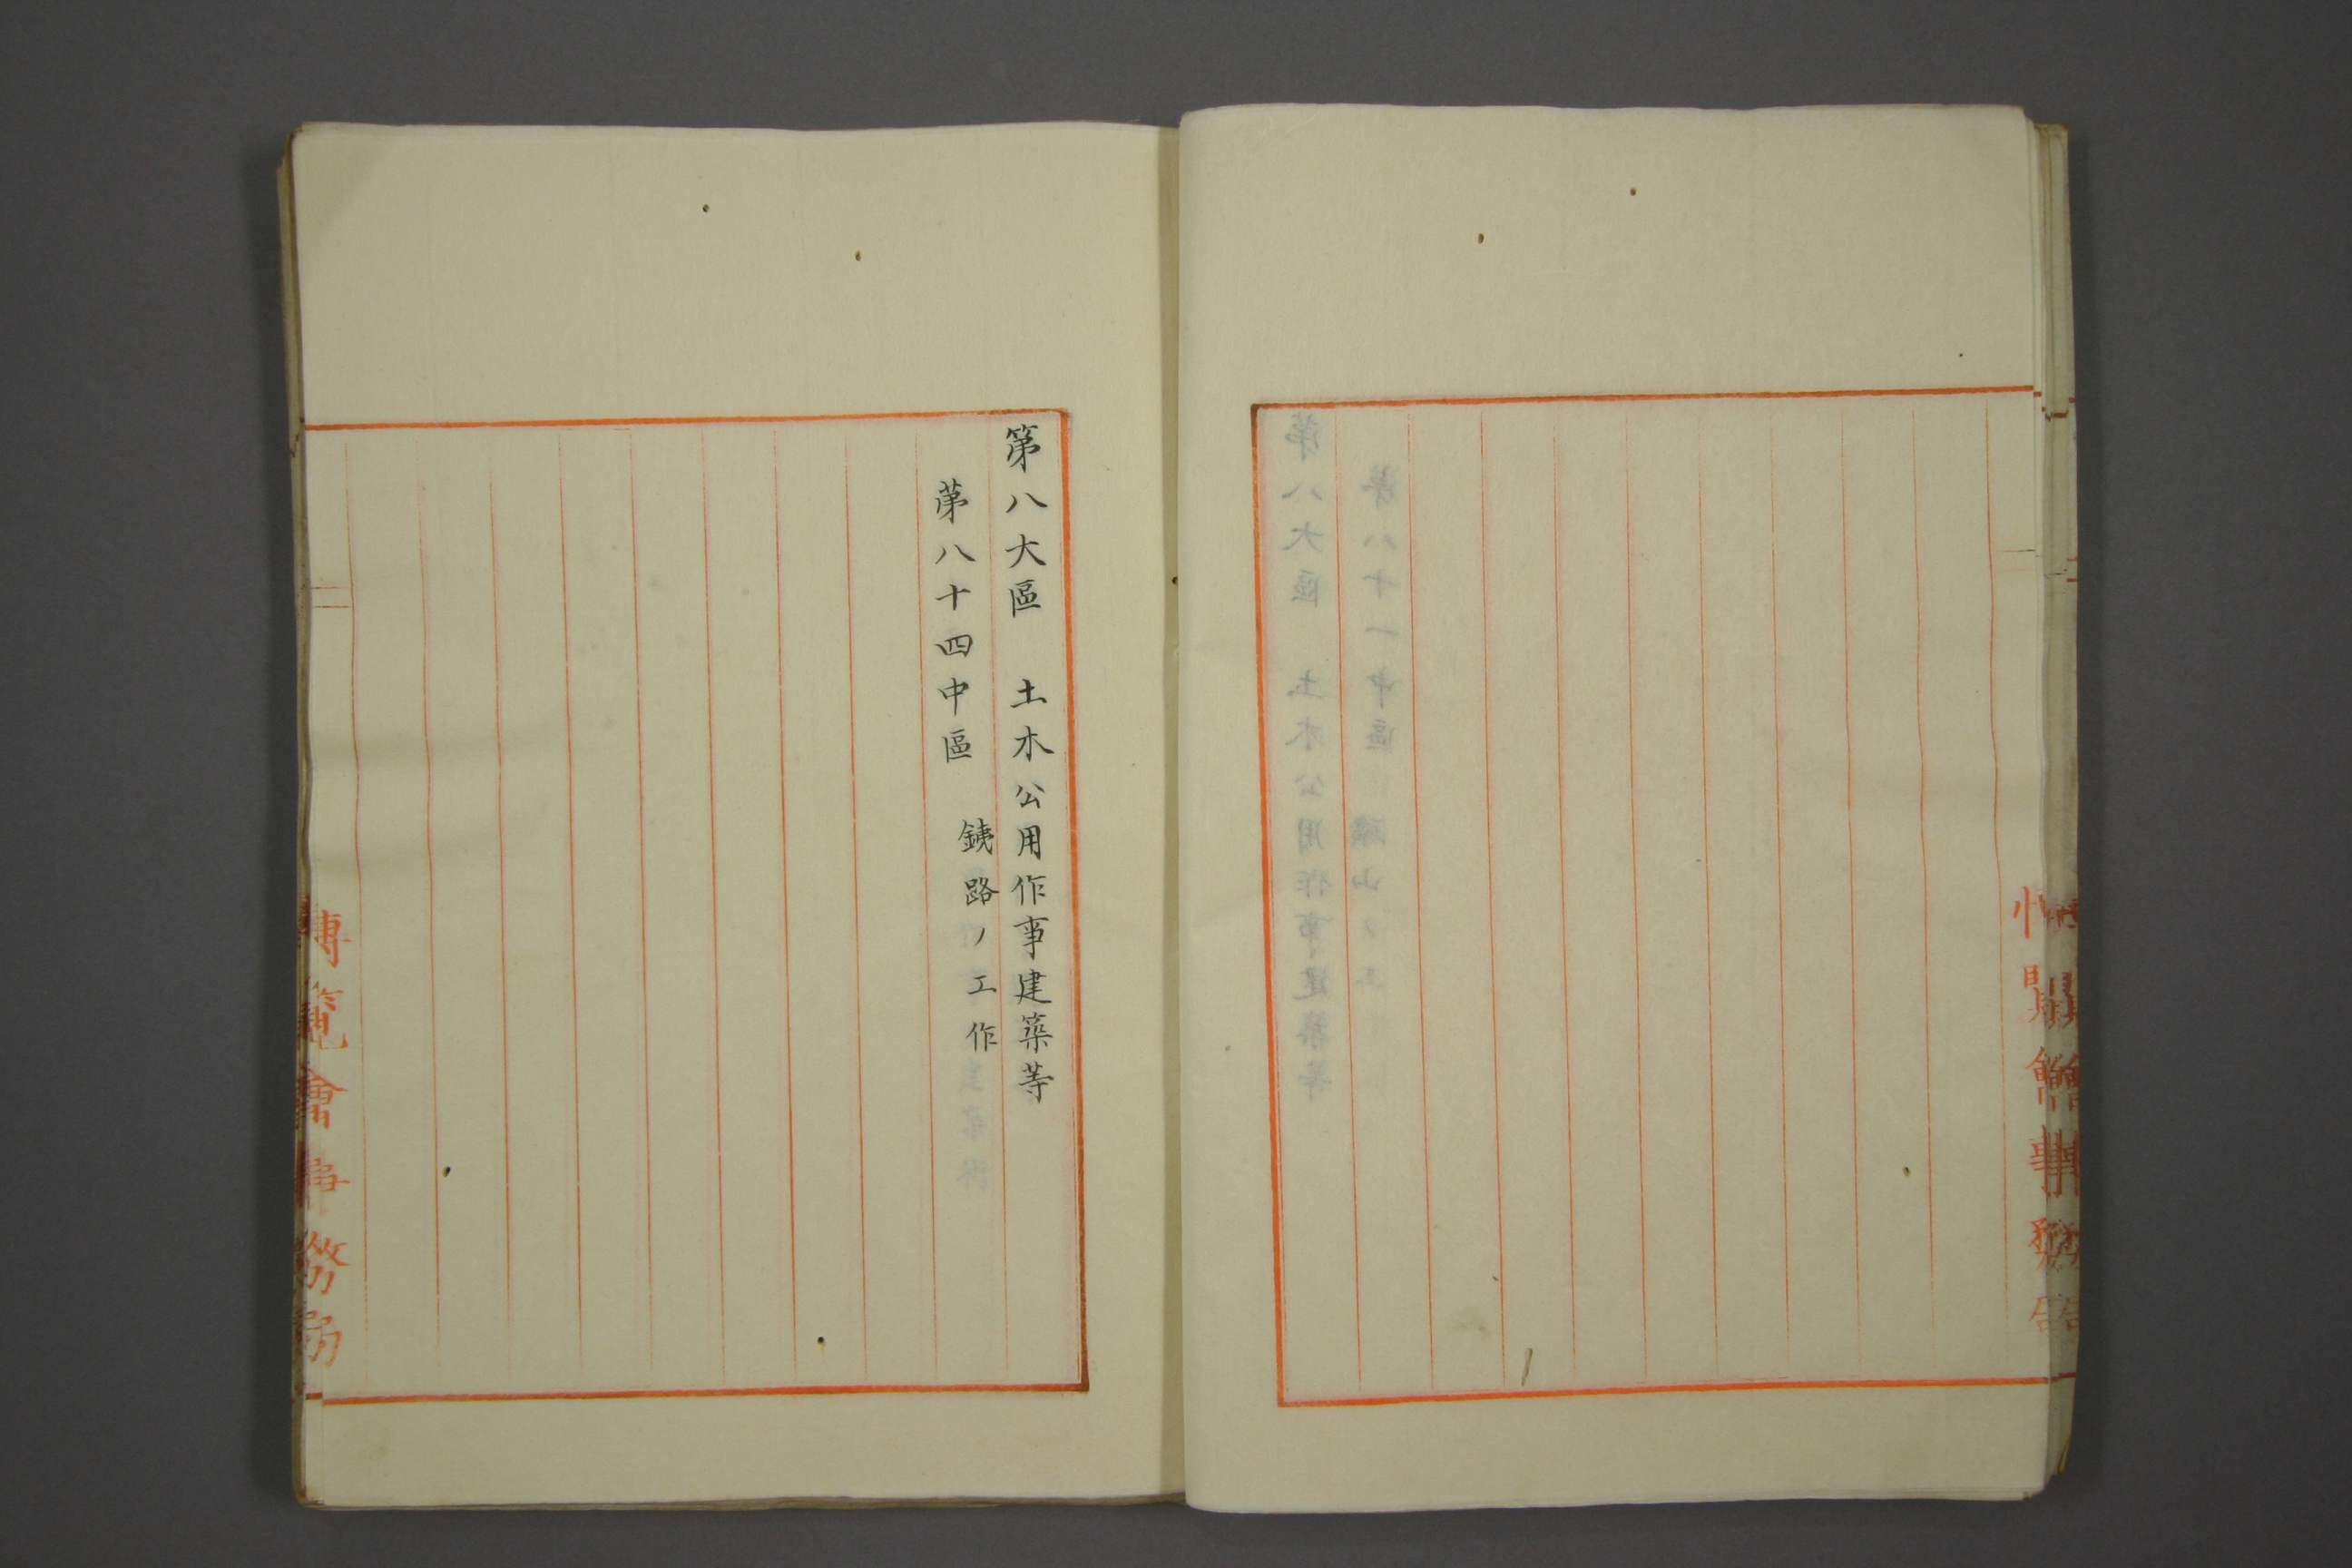 第八大區　土木公用作事建築等
第八十四中區　銕路ノ工作
博覽會事務局